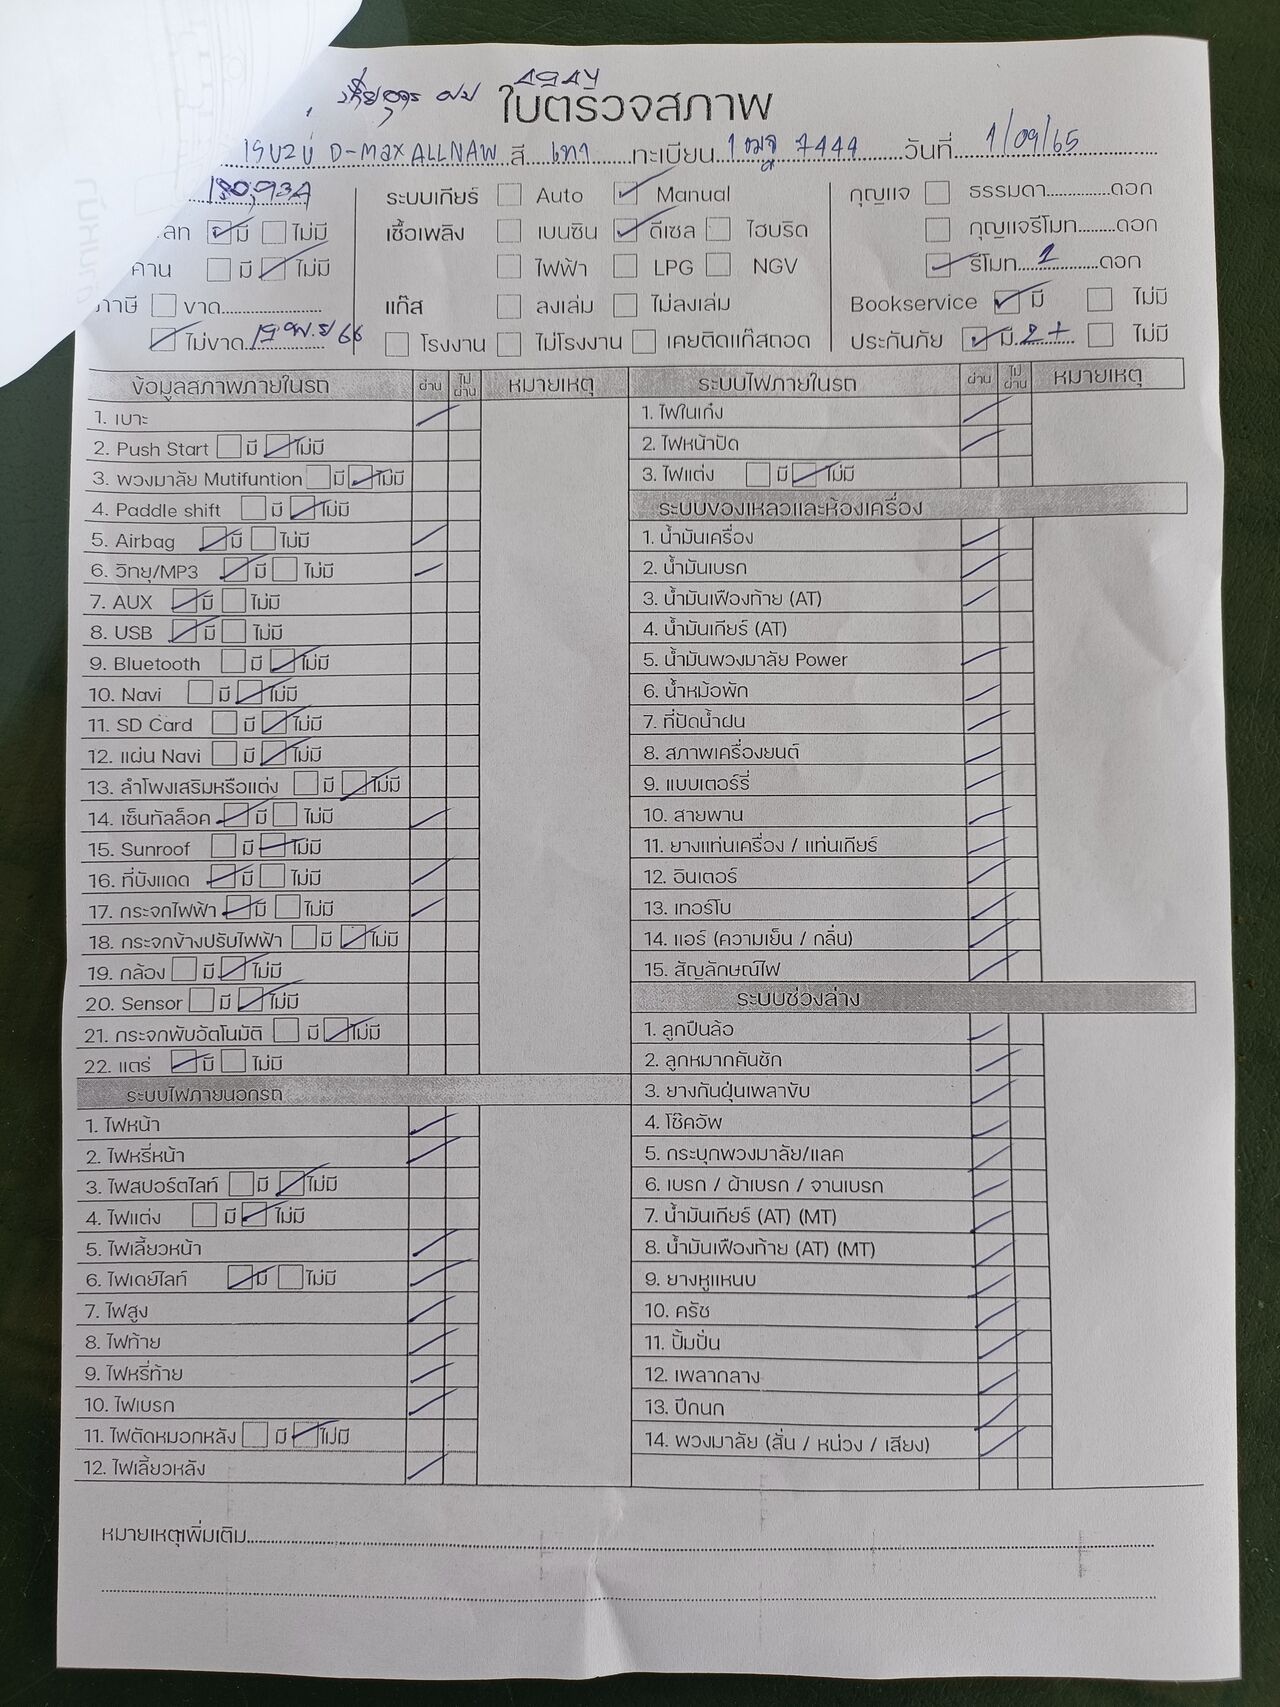 ใบตรวจสภาพ
ISUZU D-MAX ALLNAW สี เทา ทะเบียน 1 7444 วันที่ 1/09/65
ระบบเกียร์ Auto Manual กุญแจ ธรรมดา ดอก
มี ไม่มี เชื้อเพลิง เบนซิน ดีเซล ไฮบริด กุญแจรีโมท ดอก
คาน มี ไม่มี ไฟฟ้า LPG NGV รีโมท 1 ดอก
ภาษี ขาด แก๊ส ลงเล่ม ไม่ลงเล่ม Bookservice มี ไม่มี
ไม่ขาด 19 พ.ย 66 โรงงาน ไม่โรงงาน เคยติดแก๊สถอด ประกันภัย มี 2+ ไม่มี
ข้อมูลสภาพภายในรถ ผ่าน ไม่ผ่าน หมายเหตุ
1. เบาะ
2. Push Start มี ไม่มี
3. พวงมาลัย Mutifuntion มี ไม่มี
4. Paddle shift มี ไม่มี
5. Airbag มี ไม่มี
6. วิทยุ/MP3 มี ไม่มี
7. AUX มี ไม่มี
8. USB มี ไม่มี
9. Bluetooth มี ไม่มี
10. Navi มี ไม่มี
11. SD Card มี ไม่มี
12. แผ่น Navi มี ไม่มี
13. ลำโพงเสริมหรือแต่ง มี ไม่มี
14. เซ็นทัลล็อค มี ไม่มี
15. Sunroof มี ไม่มี
16. ที่บังแดด มี ไม่มี
17. กระจกไฟฟ้า มี ไม่มี
18. กระจกข้างปรับไฟฟ้า มี ไม่มี
19. กล้อง มี ไม่มี
20. Sensor มี ไม่มี
21. กระจกพับอัตโนมัติ มี ไม่มี
22. แตร่ มี ไม่มี
ระบบไฟภายนอกรถ
1. ไฟหน้า
2. ไฟหรี่หน้า
3. ไฟสปอร์ตไลท์ มี ไม่มี
4. ไฟแต่ง มี ไม่มี
5. ไฟเลี้ยวหน้า
6. ไฟเดย์ไลท์ มี ไม่มี
7. ไฟสูง
8. ไฟท้าย
9. ไฟหรี่ท้าย
10. ไฟเบรก
11. ไฟตัดหมอกหลัง มี ไม่มี
12. ไฟเลี้ยวหลัง
ระบบไฟภายในรถ ผ่าน ไม่ผ่าน หมายเหตุ
1. ไฟในเก๋ง
2. ไฟหน้าปัด
3. ไฟแต่ง มี ไม่มี
ระบบของเหลวและห้องเครื่อง
1. น้ำมันเครื่อง
2. น้ำมันเบรก
3. น้ำมันเฟืองท้าย (AT)
4. น้ำมันเกียร์ (AT)
5. น้ำมันพวงมาลัย Power
6. น้ำหม้อพัก
7. ที่ปัดน้ำฝน
8. สภาพเครื่องยนต์
9. แบบเตอร์รี่
10. สายพาน
11. ยางแท่นเครื่อง / แท่นเกียร์
12. อินเตอร์
13. เทอร์โบ
14. แอร์ (ความเย็น / กลิ่น)
15. สัญลักษณ์ไฟ
ระบบช่วงล่าง
1. ลูกปืนล้อ
2. ลูกหมากคันชัก
3. ยางกันฝุ่นเพลาขับ
4. โช๊คอัพ
5. กระบุกพวงมาลัย/แลค
6. เบรก / ผ้าเบรก / จานเบรก
7. น้ำมันเกียร์ (AT) (MT)
8. น้ำมันเฟืองท้าย (AT) (MT)
9. ยางหูแหนบ
10. ครัช
11. ปั้มปั่น
12. เพลากลาง
13. ปีกนก
14. พวงมาลัย (สั่น / หน่วง / เสียง)
หมายเหตุเพิ่มเติม